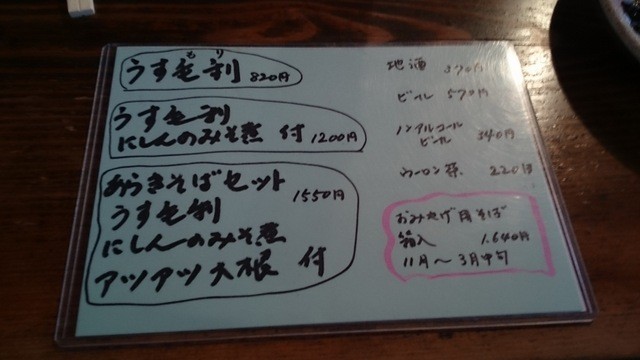 もり
うす毛利 820円
うす毛利
にしんのみそ煮 付 1200円
あらきそばセット 1550円
うす毛利
にしんのみそ煮
アツアツ大根 付
地酒 370円
ビール 570円
ノンアルコール
ビール 340円
ウーロン茶 220円
おみやげ用そば
箱入 1.640円
11月〜3月中旬